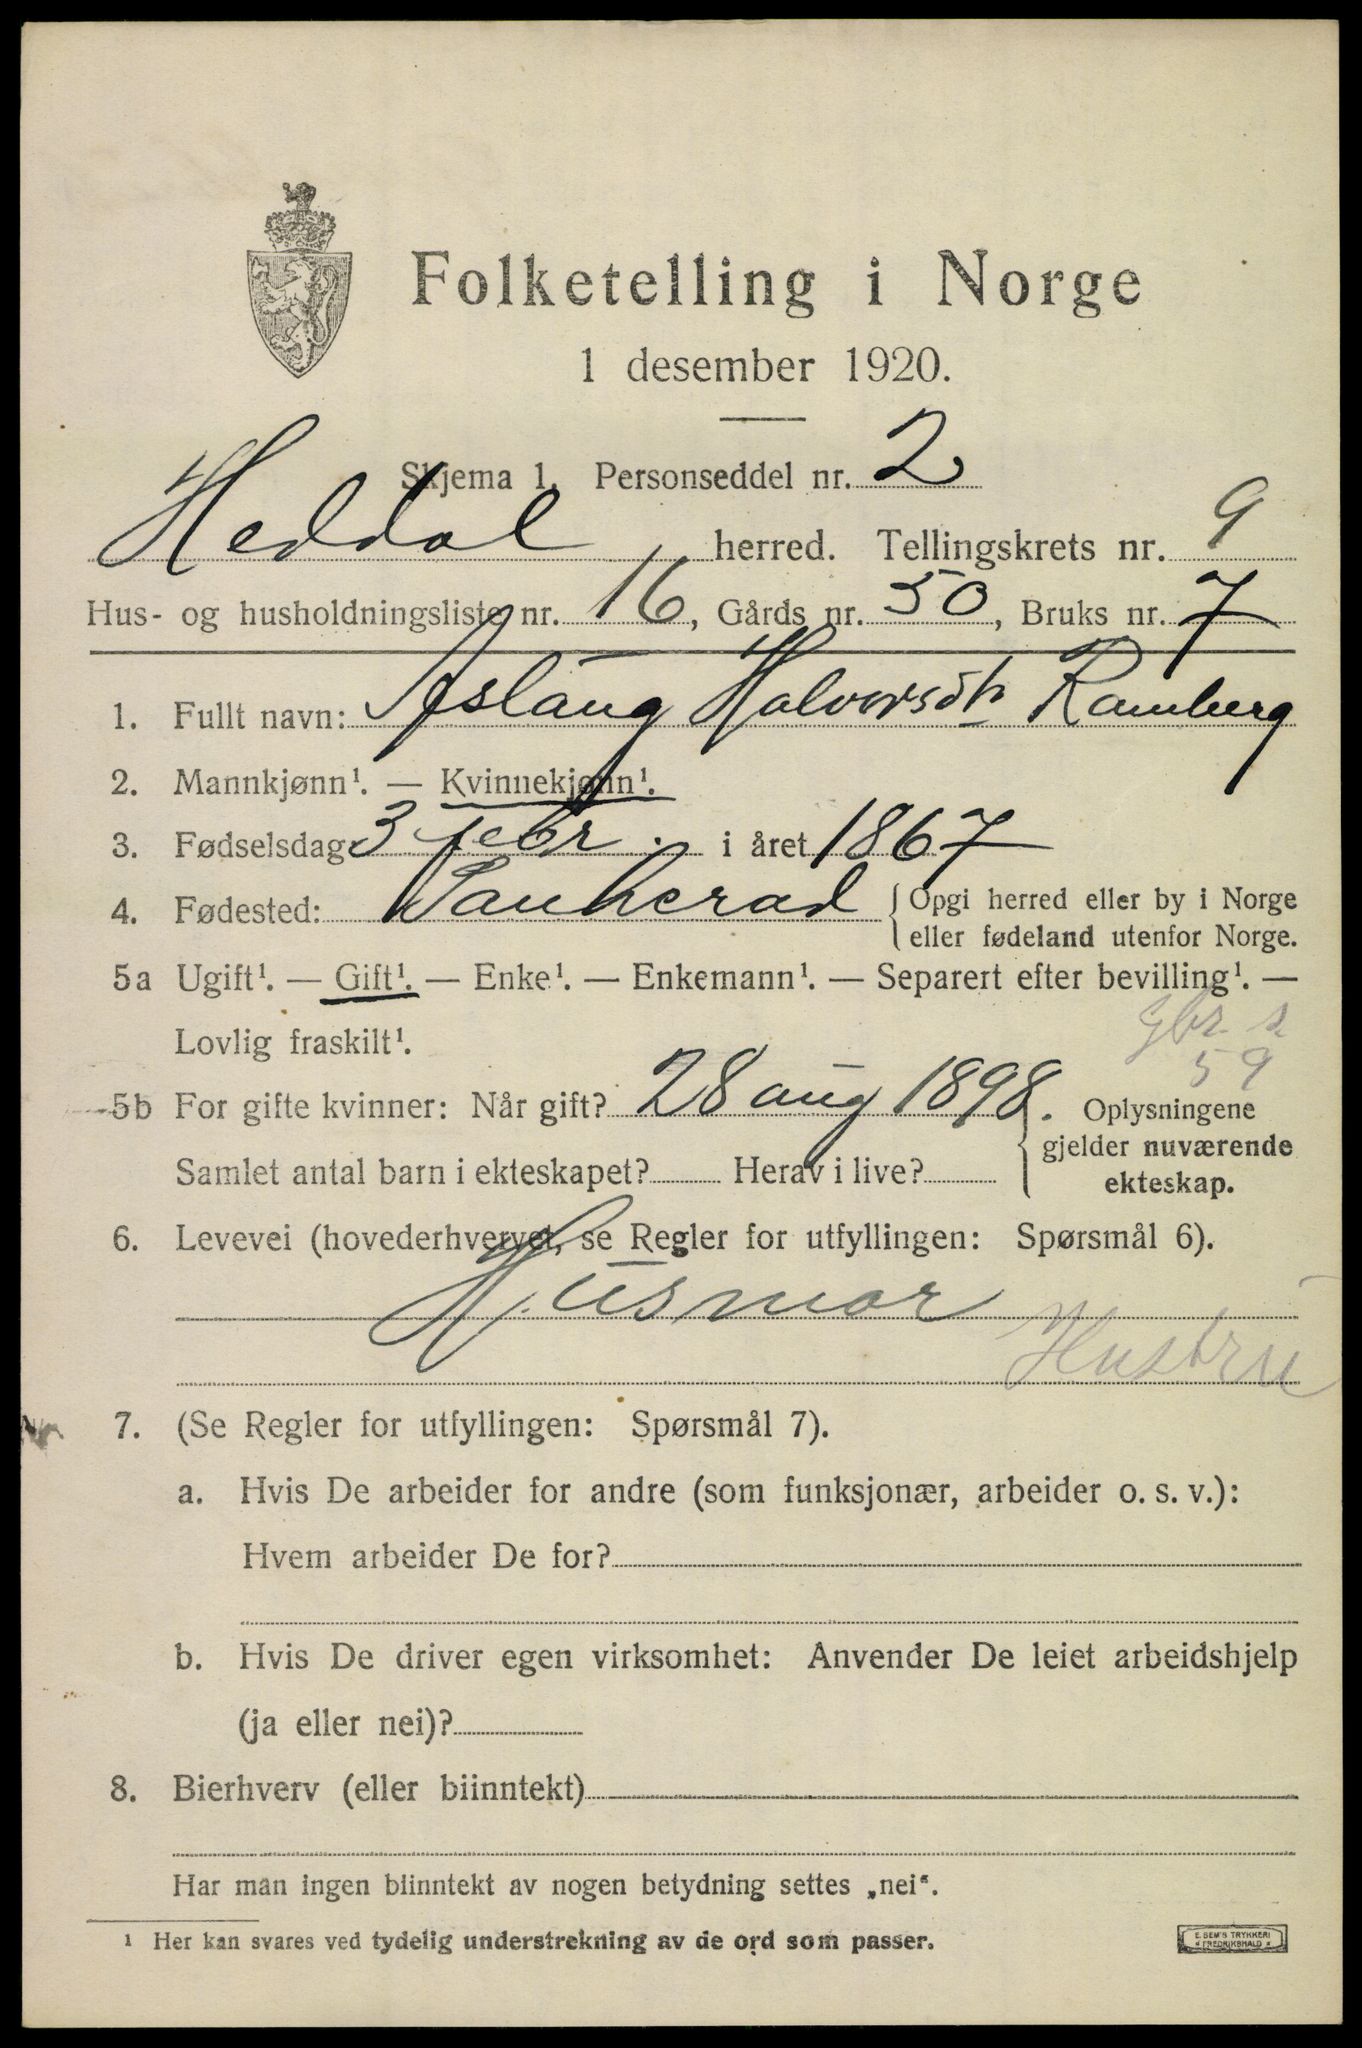 Folketelling i Norge
1 desember 1920.
Skjema 1. Personseddel nr. 2
Heddal herred. Tellingskrets nr. 9
Hus- og husholdningsliste nr. 16, Gårds nr. 50, Bruks nr. 7
1. Fullt navn: Aslaug Halvorsdtr Ramberg
2. Mannkjønn¹. — Kvinnekjønn¹.
3. Fødselsdag 3 febr. i året 1867
4. Fødested: Sauherad {Opgi herred eller by i Norge
eller fødeland utenfor Norge.
5a Ugift¹. — Gift¹. — Enke¹. — Enkemann¹. — Separert efter bevilling¹. —
Lovlig fraskilt¹.
gbr. s
59
5b For gifte kvinner: Når gift? 28 aug 1898. Oplysningene
gjelder nuværende
Samlet antal barn i ekteskapet? Herav i live?
ekteskap.
6. Levevei (hovederhvervet, se Regler for utfyllingen: Spørsmål 6).
Husmor
Hustru
7. (Se Regler for utfyllingen: Spørsmål 7).
a. Hvis De arbeider for andre (som funksjonær, arbeider o. s. v.):
Hvem arbeider De for?
b. Hvis De driver egen virksomhet: Anvender De leiet arbeidshjelp
(ja eller nei)?
8. Bierhverv (eller biinntekt)
Har man ingen biinntekt av nogen betydning settes „nei“.
¹ Her kan svares ved tydelig understrekning av de ord som passer.
E. SEM'S TRYKKERI
* FREDRIKSHALD *